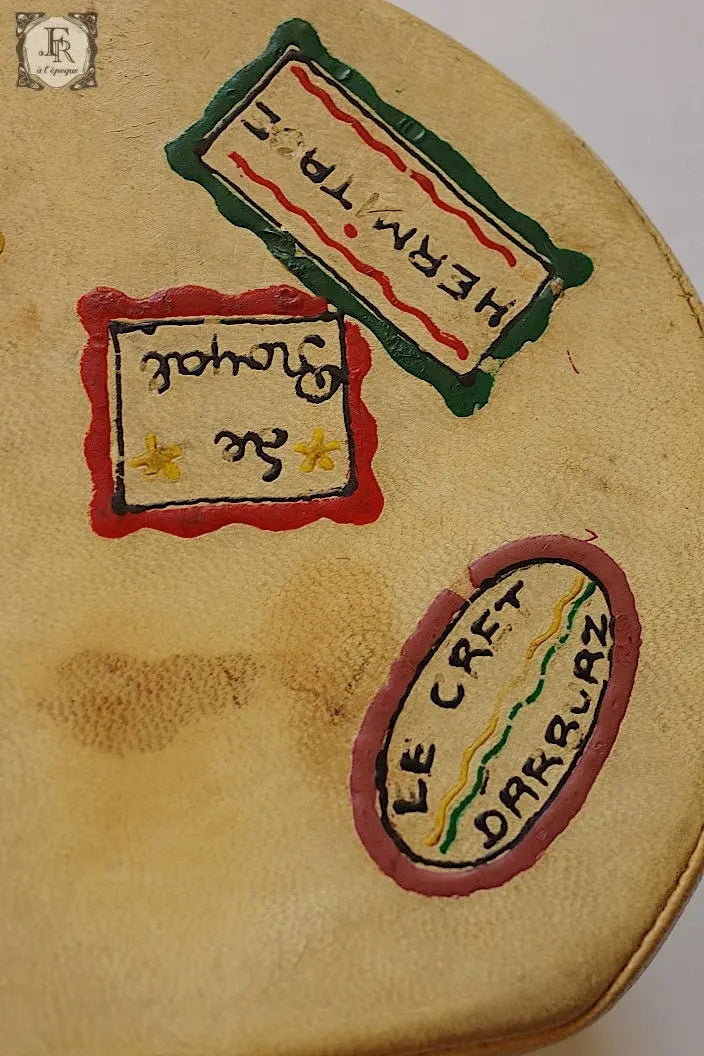 FR
à l'époque
HERMITAGE
Le
Royal
LE CRET